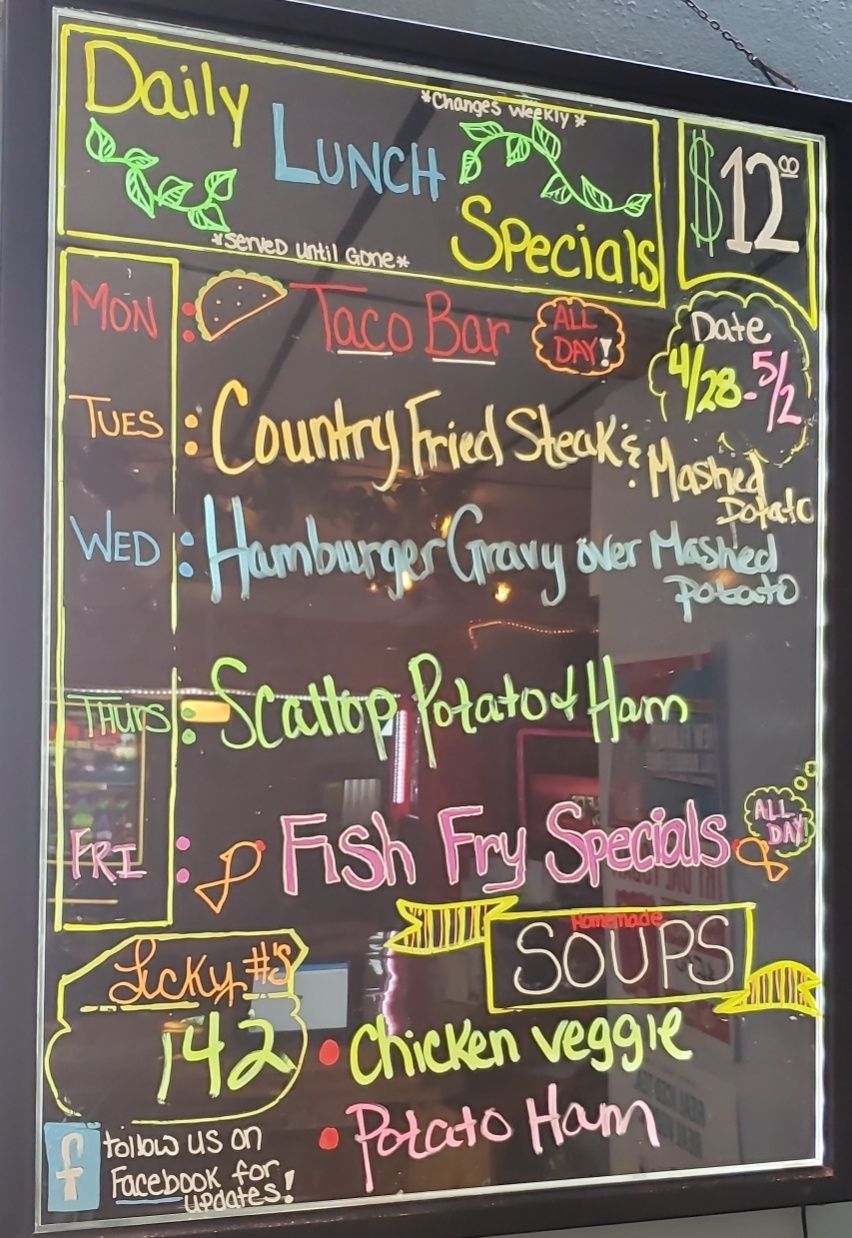 Daily
*Changes weekly*
LUNCH
Specials
*Served until Gone*
$12.00
Date
4/28-5/2
MON : Taco Bar ALL DAY!
TUES : Country Fried Steak & Mashed Potato
WED : Hamburger Gravy over Mashed Potato
THURS : Scallop Potato & Ham
FRI : Fish Fry Specials ALL DAY!
Homemade
SOUPS
• Chicken veggie
• Potato Ham
Lucky #'s
142
f follow us on
Facebook for
updates!